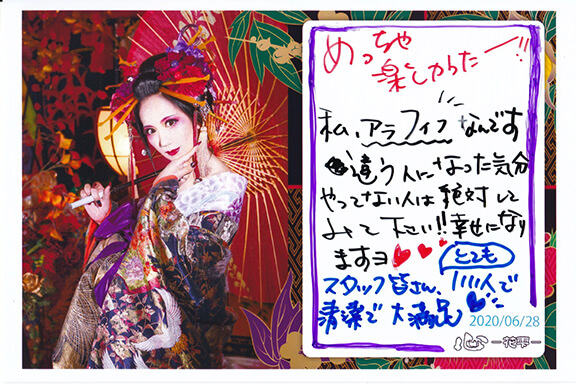 めっちゃ
楽しかったー!!
私、アラフィフなんです
違う人になった気分
やってない人は絶対して
みて下さい!!幸せになり
ますヨ
とても
スタッフ皆さん、いい人で
清潔で大満足
2020/06/28
心 —花雫—